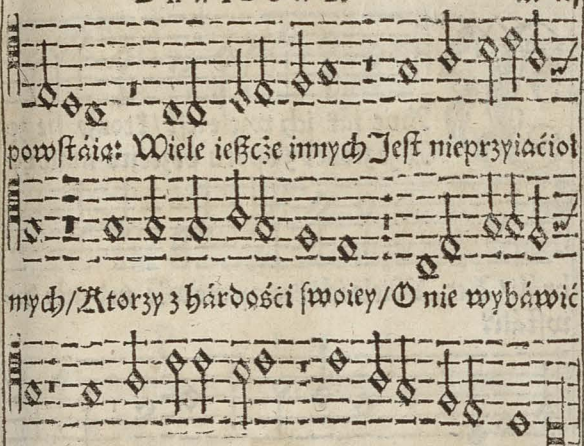 powſtáią: Wiele ieſzcże innych Jeſt nieprzyiaćioł
mych/Ktorzy z hárdośći ſwoiey/O nie wybáwić